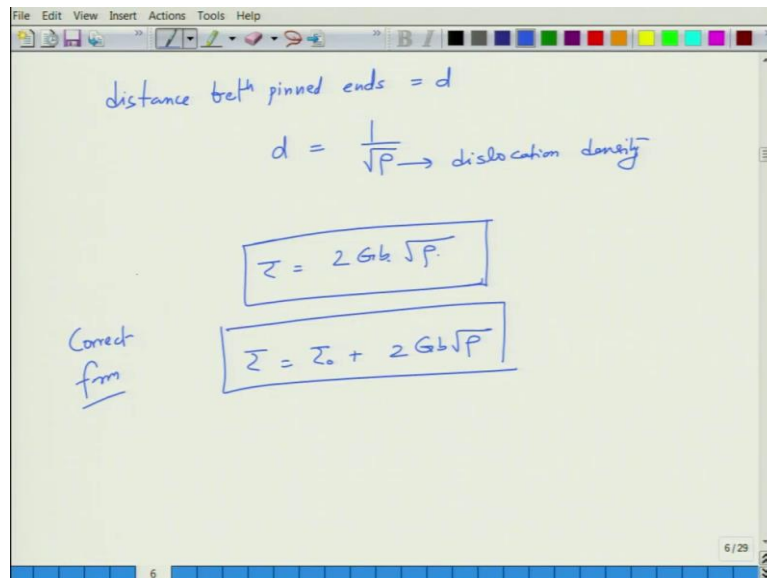 File Edit View Insert Actions Tools Help
B I
distance betn pinned ends = d
d = 1/√ρ → dislocation density
τ = 2 Gb √ρ.
Correct form
τ = τ₀ + 2 Gb√ρ
6/29
6